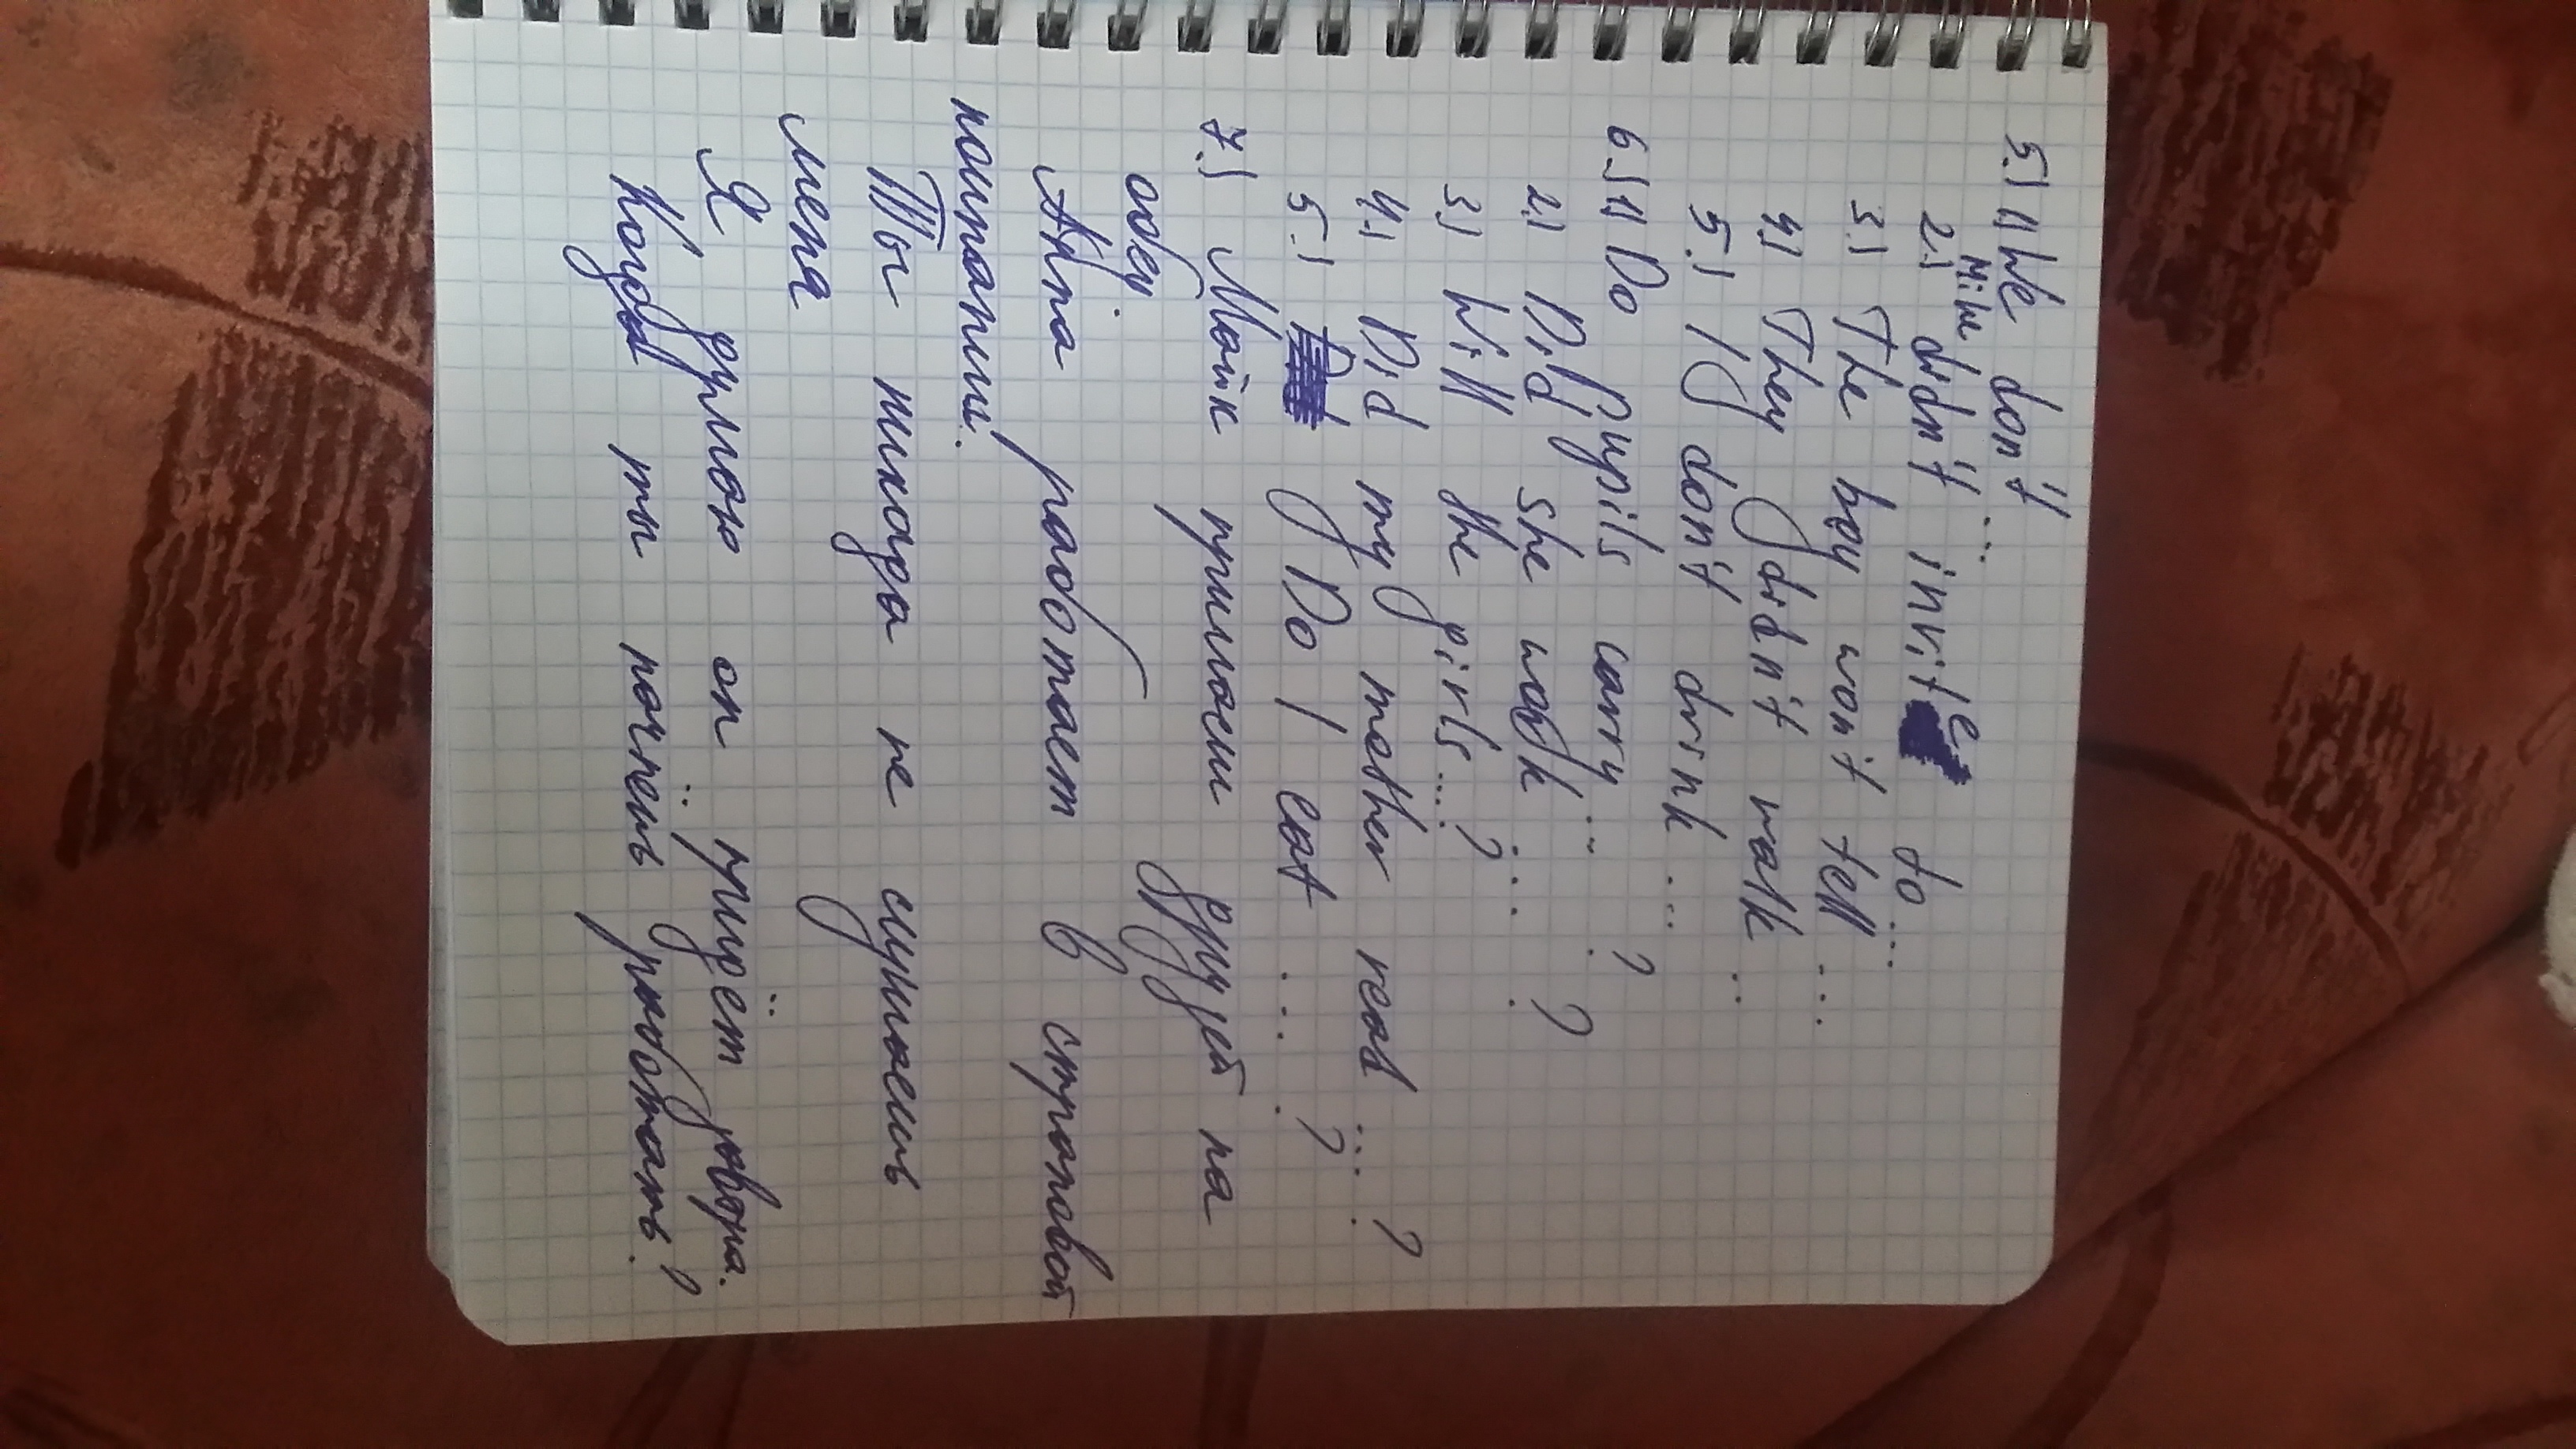 5.) 1) We don't ...
2.) Mike didn't invite to ...
3.) The boy won't tell ...
4.) They didn't walk ...
5.) I don't drink ...
6.) 1) Do pupils carry ... ?
2.) Did she work ... ?
3.) Will the girls ... ?
4.) Did my mother read ... ?
5.) Do I eat ... ?
7.) Майк пригласил друзей на
обед.
Анна работает в строповой
компании.
Ты никогда не слушаешь
меня
Я думаю он придёт завтра.
Когда ты начнёшь работать?